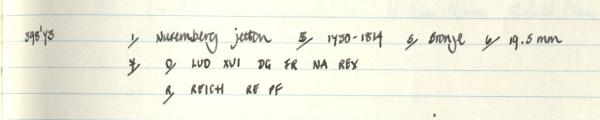 398'43 1, Nuremberg jetton 3, 1730-1814 5, Bronze 6, 19.5 mm
7, O, LUD XVI DG FR NA REX
R, REICH RE PF